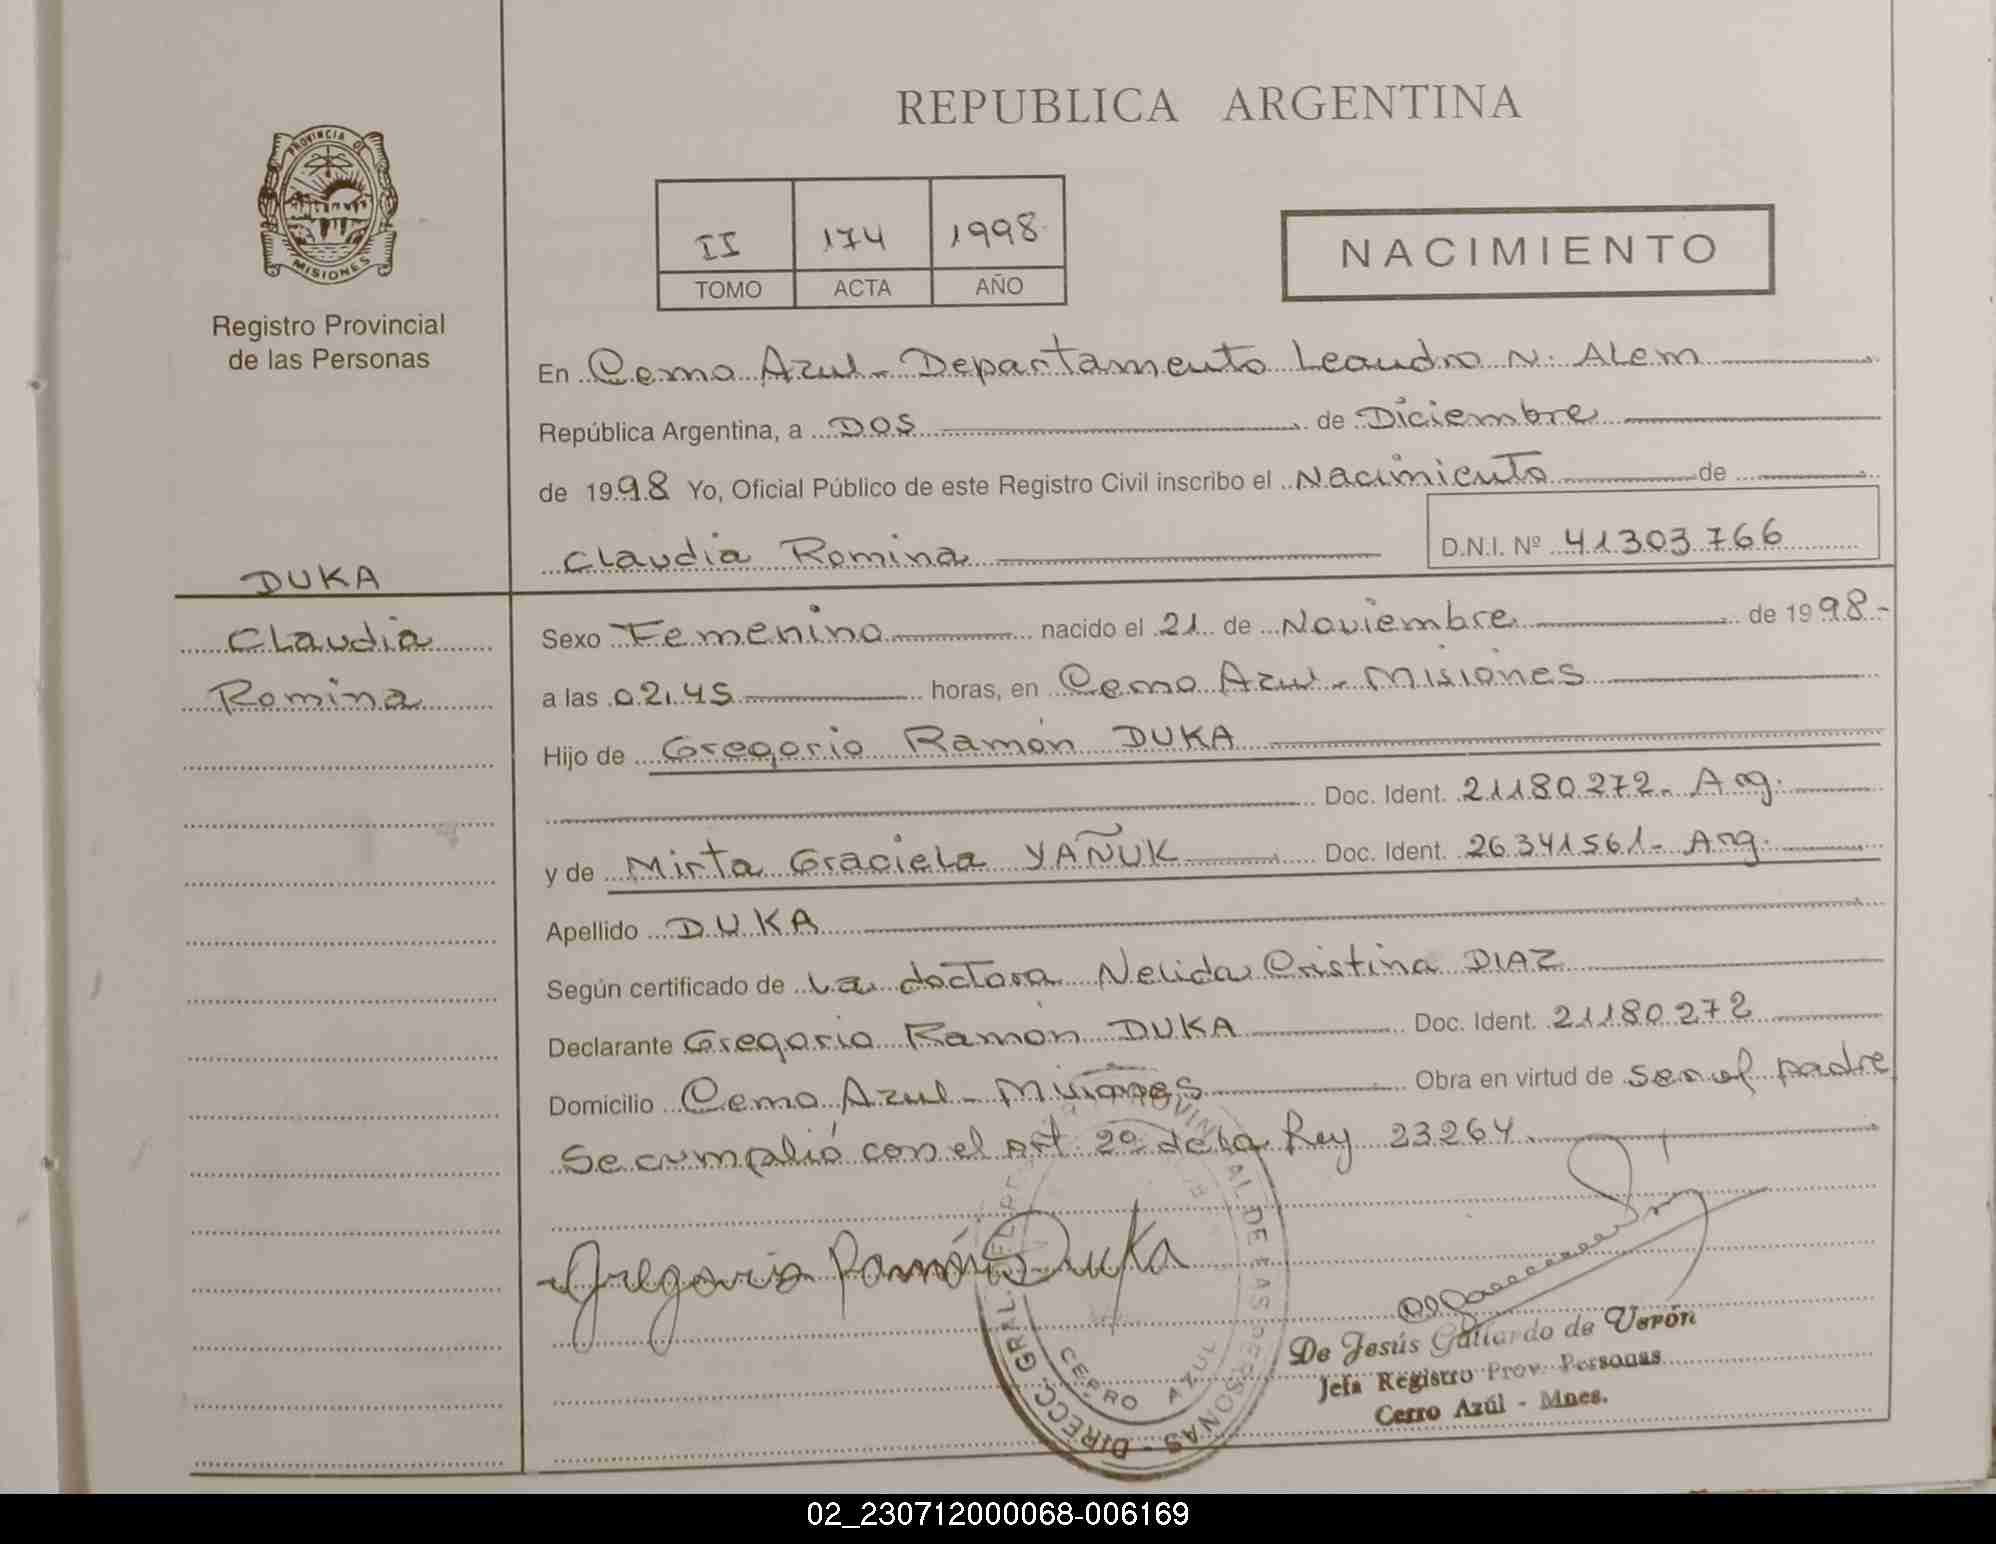 REPUBLICA ARGENTINA
PROVINCIA DE
MISIONES
Registro Provincial
de las Personas
II 174 1998
TOMO ACTA AÑO
NACIMIENTO
En Cerro Azul - Departamento Leandro N. Alem
República Argentina, a DOS de Diciembre
de 1998 Yo, Oficial Público de este Registro Civil inscribo el Nacimiento de
Claudia Romina D.N.I. Nº 41303766
DUKA
Claudia
Romina
Sexo Femenino nacido el 21 de Noviembre de 1998-
a las 02,45 horas, en Cerro Azul - Misiones
Hijo de Gregorio Ramón DUKA
Doc. Ident. 21180272- Arg.
y de Mirta Graciela YAÑUK Doc. Ident. 26341561- Arg.
Apellido DUKA
Según certificado de La doctora Nelida Cristina DIAZ
Declarante Gregorio Ramón DUKA Doc. Ident. 21180272
Domicilio Cerro Azul - Misiones Obra en virtud de ser el padre
Se cumplió con el Art. 2º de la Ley 23264.
Gregorio Ramón Duka
DIRECC. GRAL. DEL REG. PROVINCIAL DE LAS PERSONAS -
CERRO AZUL
De Jesús Gallardo de Verón
Jefa Registro Prov. Personas
Cerro Azúl - Mnes.
02_230712000068-006169